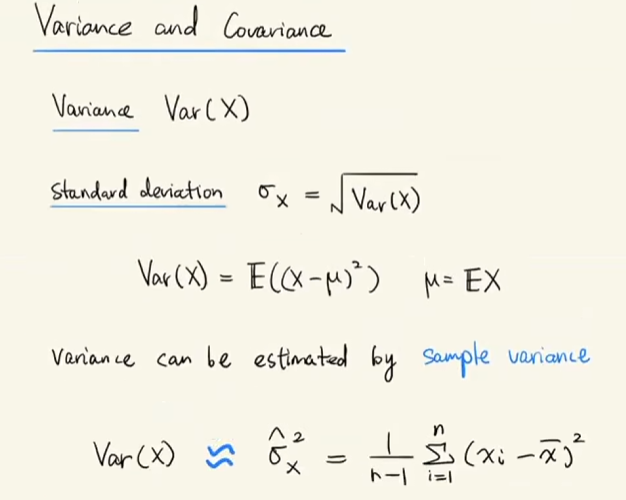 Variance and Covariance
Variance Var(X)
Standard deviation σ_X = √Var(X)
Var(X) = E((X-μ)²) μ = EX
variance can be estimated by sample variance
Var(X) ≈ σ̂_X² = 1/(n-1) Σ_{i=1}^{n} (xi - x̄)²